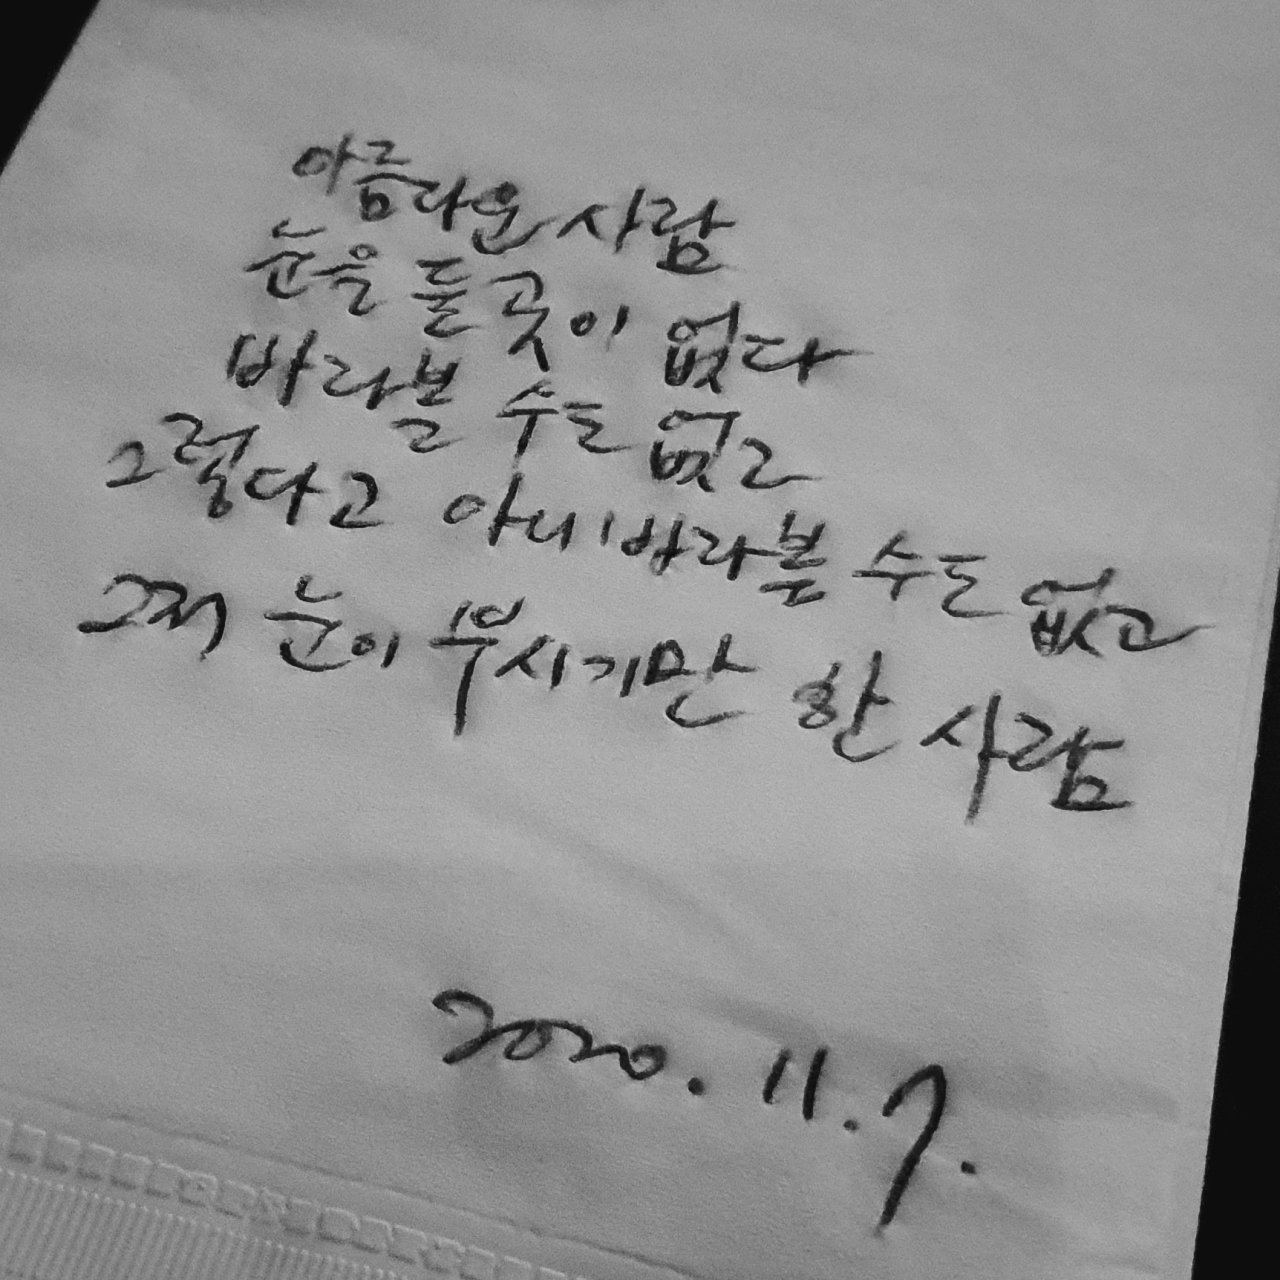 아름다운 사람
눈을 둘 곳이 없다
바라볼 수도 없고
그렇다고 아니 바라볼 수도 없고
그저 눈이 부시기만 한 사람
2020. 11. 7.